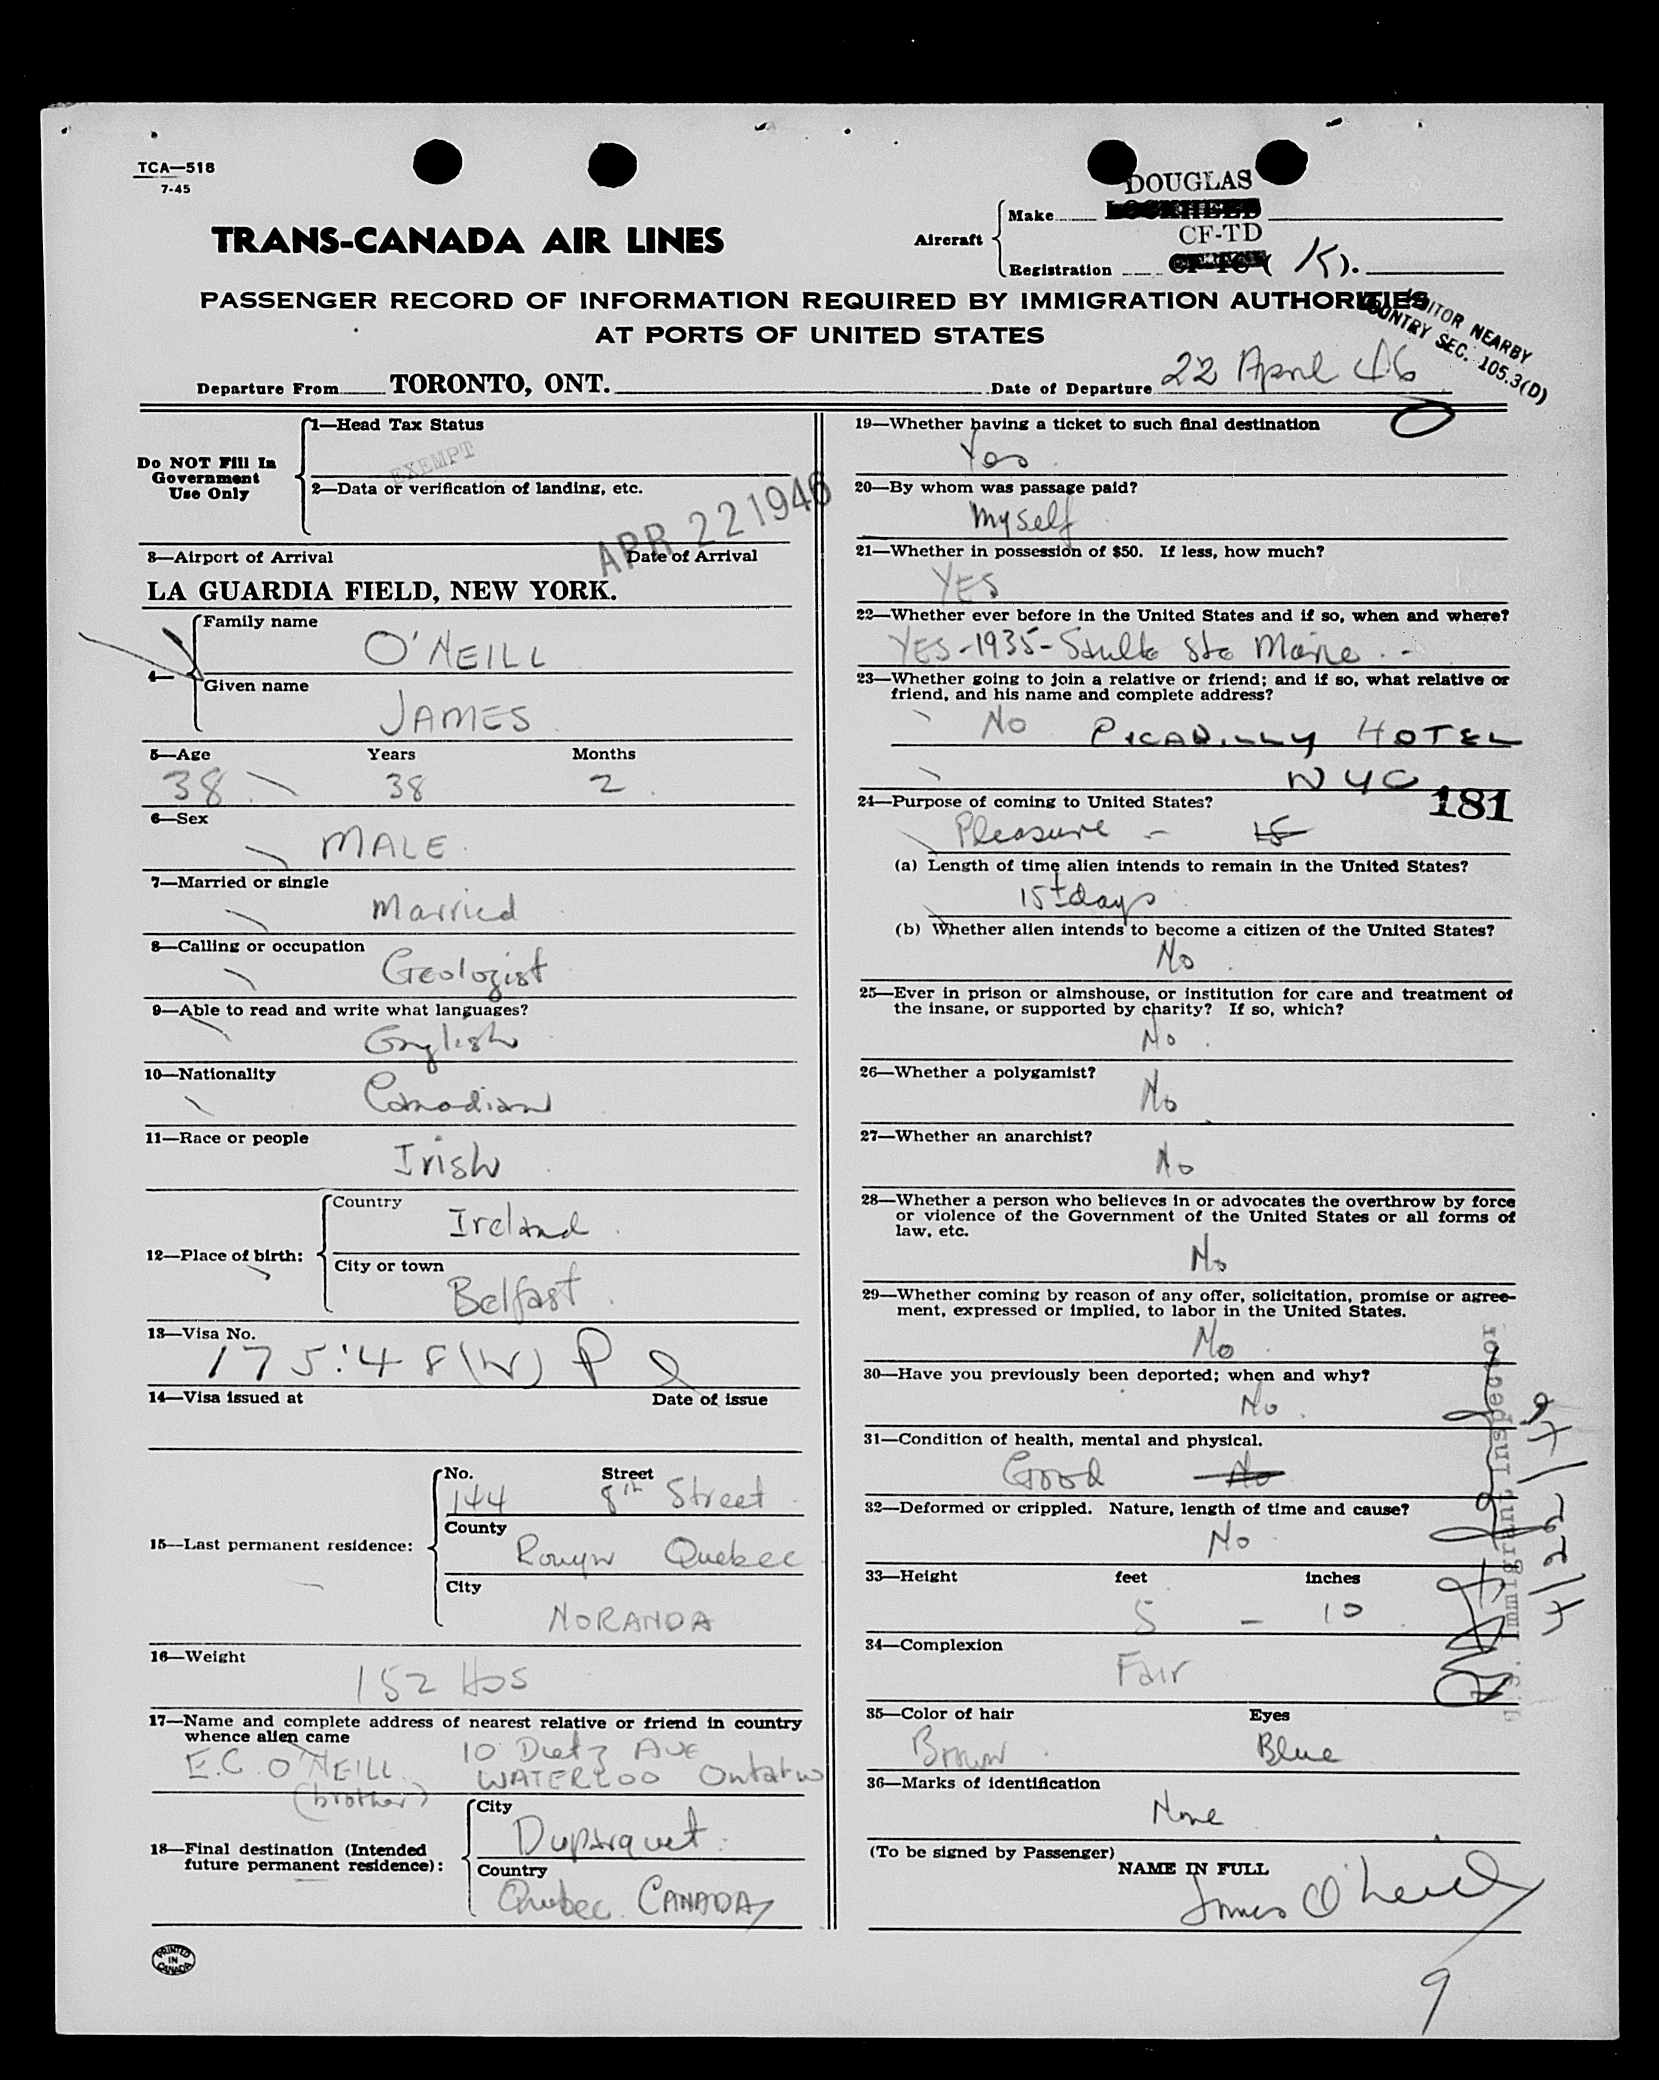 TCA—518
7-45
DOUGLAS
Aircraft
Make
LOCKHEED
CF-TD
Registration
K).
TRANS-CANADA AIR LINES
PASSENGER RECORD OF INFORMATION REQUIRED BY IMMIGRATION AUTHORITIES
AT PORTS OF UNITED STATES
VISITOR NEARBY
COUNTRY SEC. 105.3(D)
Departure From TORONTO, ONT. Date of Departure 22 April 46
Do NOT Fill In
Government
Use Only
1—Head Tax Status
EXEMPT
2—Data or verification of landing, etc.
APR 22 1946
3—Airport of Arrival Date of Arrival
LA GUARDIA FIELD, NEW YORK.
4—
Family name
O'NEILL
Given name
JAMES
5—Age Years Months
38 38 2
6—Sex
MALE
7—Married or single
Married
8—Calling or occupation
Geologist
9—Able to read and write what languages?
English
10—Nationality
Canadian
11—Race or people
Irish
12—Place of birth:
Country
Ireland
City or town
Belfast
13—Visa No.
14—Visa issued at Date of issue
15—Last permanent residence:
No. Street
144 8th Street
County
Rouyn Quebec
City
NORANDA
16—Weight
152 lbs
17—Name and complete address of nearest relative or friend in country
whence alien came
E.C. O'NEILL 10 Dietz AVE
(brother) WATERLOO Ontario
18—Final destination (Intended
future permanent residence):
City
Duparquet
Country
Quebec. CANADA
PRINTED
IN
CANADA
19—Whether having a ticket to such final destination
Yes
20—By whom was passage paid?
myself
21—Whether in possession of $50. If less, how much?
YES
22—Whether ever before in the United States and if so, when and where?
YES-1935-Saulte Ste Marie
23—Whether going to join a relative or friend; and if so, what relative or
friend, and his name and complete address?
No PICADILLY HOTEL
NYC
181
24—Purpose of coming to United States?
Pleasure - 15
(a) Length of time alien intends to remain in the United States?
15± days
(b) Whether alien intends to become a citizen of the United States?
No
25—Ever in prison or almshouse, or institution for care and treatment of
the insane, or supported by charity? If so, which?
No
26—Whether a polygamist?
No
27—Whether an anarchist?
No
28—Whether a person who believes in or advocates the overthrow by force
or violence of the Government of the United States or all forms of
law, etc.
No
29—Whether coming by reason of any offer, solicitation, promise or agree-
ment, expressed or implied, to labor in the United States.
No
30—Have you previously been deported; when and why?
No
31—Condition of health, mental and physical.
Good No
32—Deformed or crippled. Nature, length of time and cause?
No
33—Height feet inches
5 - 10
34—Complexion
Fair
35—Color of hair Eyes
Brown Blue
36—Marks of identification
None
(To be signed by Passenger)
NAME IN FULL
James O'Neill
U.S. Immigrant Inspector
4/22/46
9